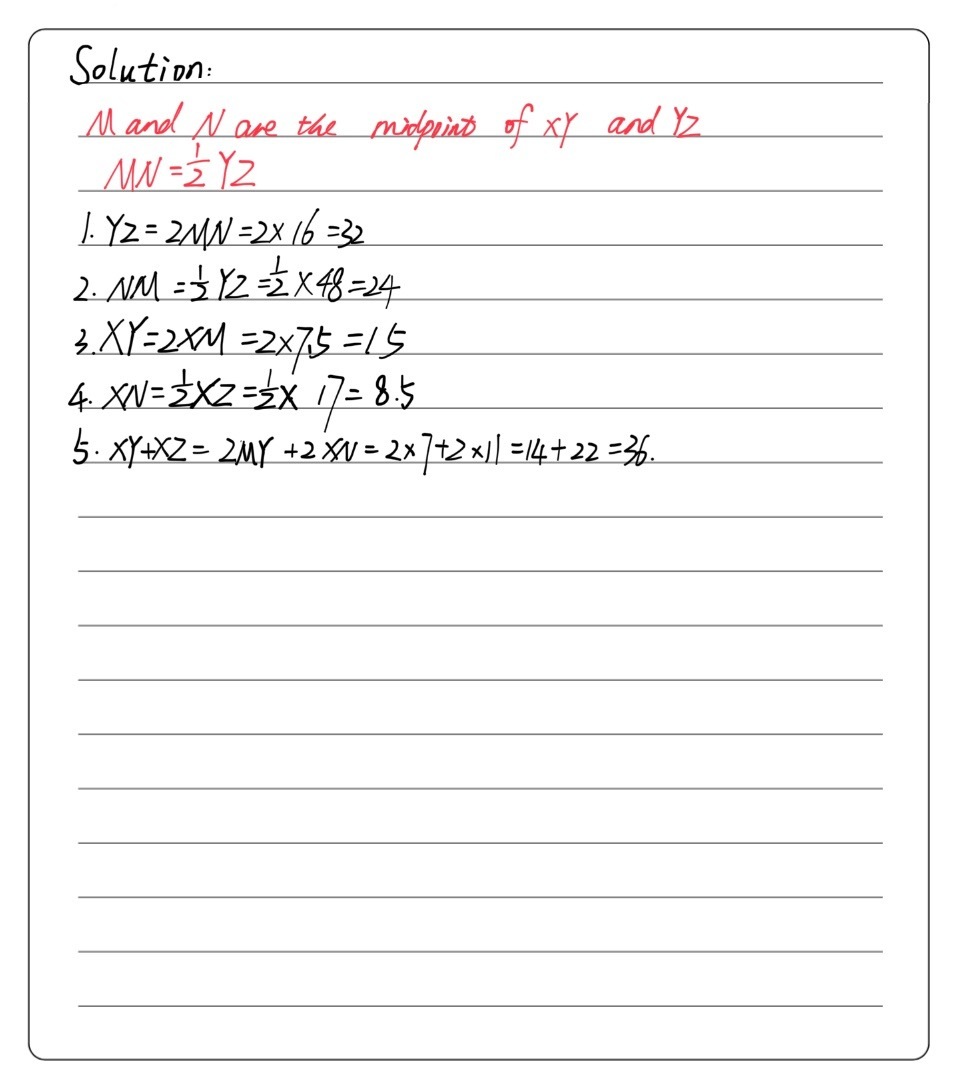 Solution:
M and N are the midpoints of XY and YZ
MN = 1/2 YZ
1. YZ = 2MN = 2 × 16 = 32
2. NM = 1/2 YZ = 1/2 × 48 = 24
3. XY = 2XM = 2 × 7.5 = 15
4. XN = 1/2 XZ = 1/2 × 17 = 8.5
5. XY + XZ = 2MY + 2XN = 2 × 7 + 2 × 11 = 14 + 22 = 36.